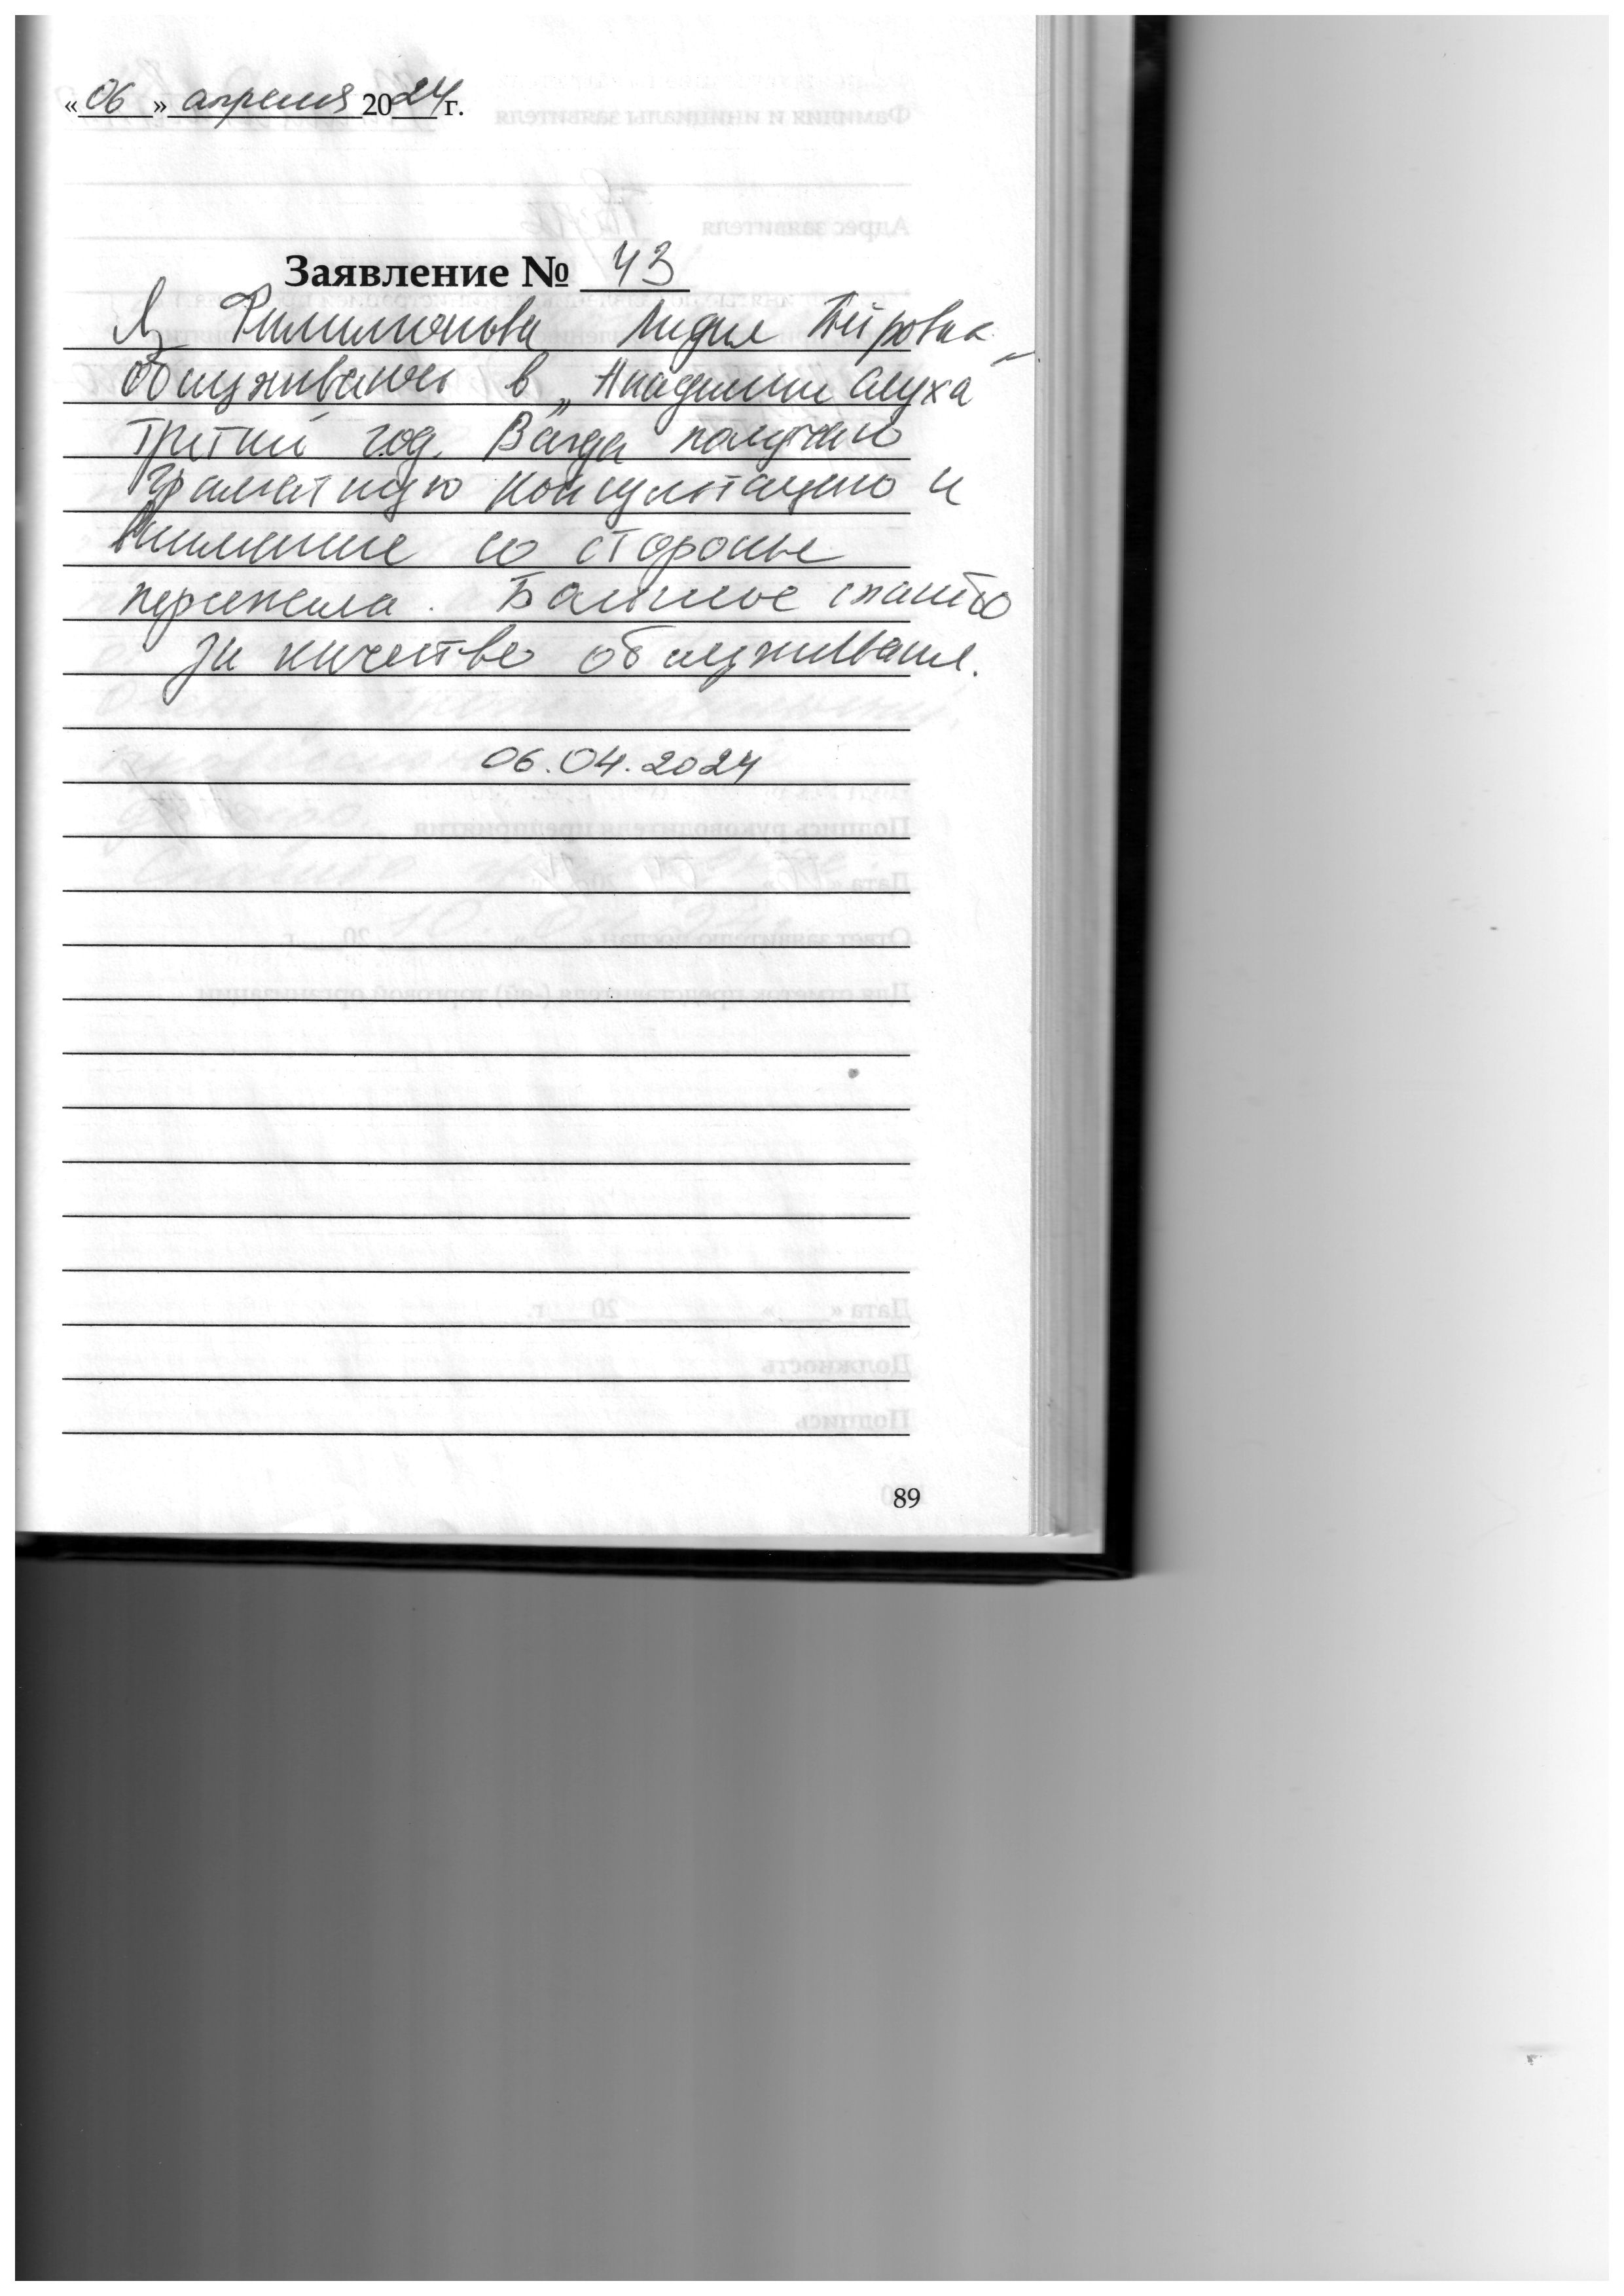 «06» апреля 2024 г.
Заявление № 43
Я, Филимонова Лидия Петровна
обслуживаюсь в „Академии слуха"
третий год. Всегда получаю
грамотную консультацию и
внимание со стороны
персонала. Большое спасибо
за качество обслуживания.
06.04.2024
89